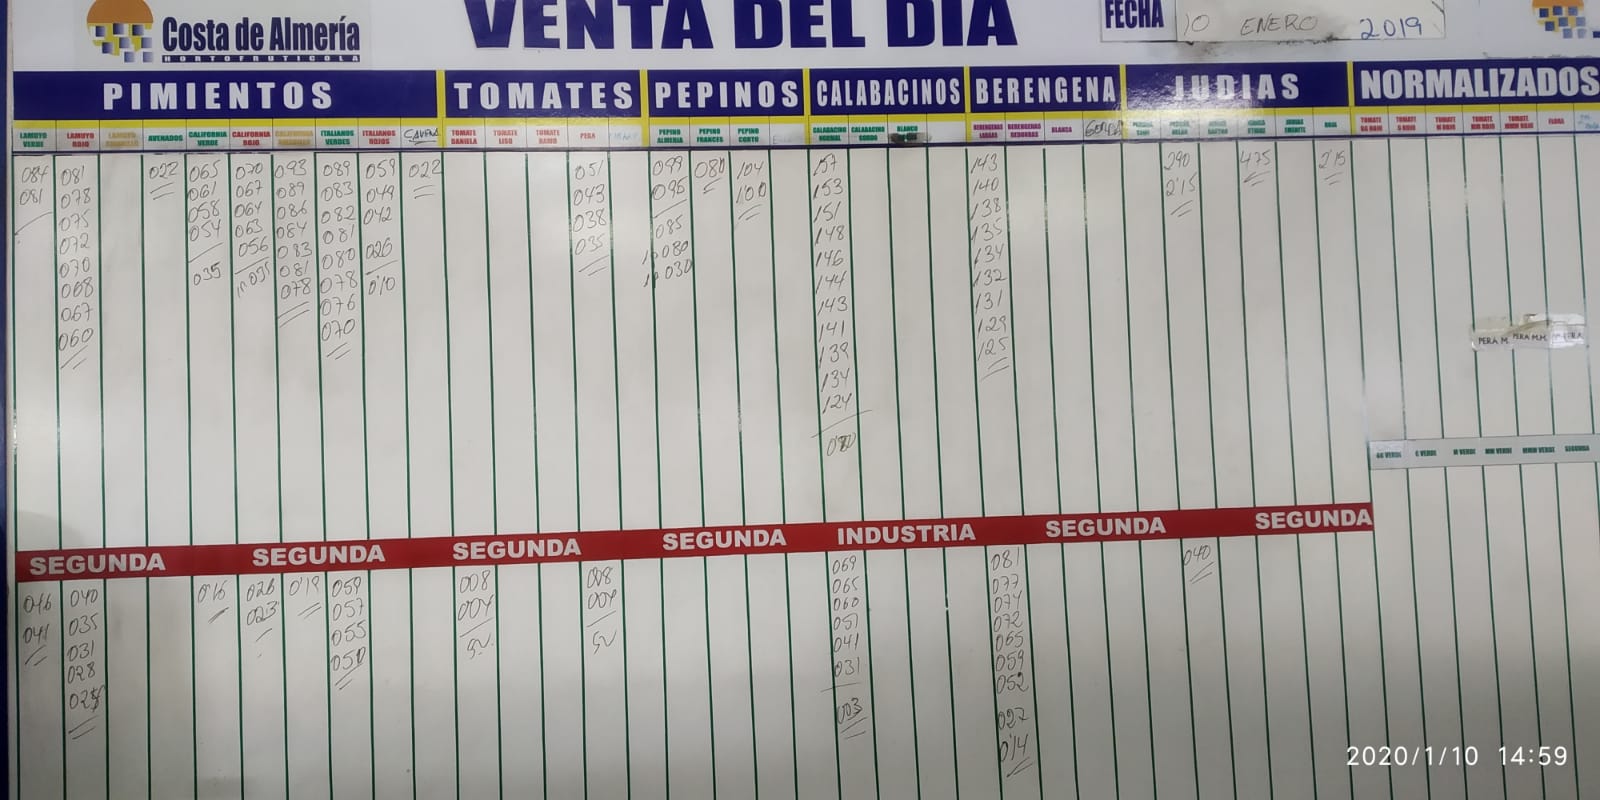 Costa de Almería
HORTOFRUTICOLA
VENTA DEL DIA
FECHA
10 ENERO 2019
PIMIENTOS
TOMATES
PEPINOS
CALABACINOS
BERENGENA
JUDIAS
NORMALIZADOS
LAMUYO VERDE
LAMUYO ROJO
LAMUYO AMARILLO
AVENADOS
CALIFORNIA VERDE
CALIFORNIA ROJO
CALIFORNIA AMARILLO
ITALIANOS VERDES
ITALIANOS ROJOS
TOMATE DANIELA
TOMATE LISO
TOMATE RAMO
PERA
PEPINO ALMERIA
PEPINO FRANCES
PEPINO CORTO
CALABACINO NORMAL
CALABACINO GORDO
BLANCO
BERENGENAS LARGAS
BERENGENAS REDONDAS
BLANCA
ROJA
TOMATE GG ROJO
TOMATE G ROJO
TOMATE M ROJO
TOMATE MM ROJO
TOMATE MMM ROJO
084
081
081
078
075
072
070
068
067
060
022
065
061
058
054
035
070
067
064
063
056
093
089
086
084
083
081
078
089
083
082
081
080
078
076
070
059
049
042
026
0'10
022
051
043
038
035
099
095
085
080
030
080
104
100
157
153
151
148
146
144
143
141
139
134
124
143
140
138
135
134
132
131
129
125
290
2'15
475
2'15
PERA M.
PERA M.M.
GG VERDE
G VERDE
M VERDE
MM VERDE
MMM VERDE
SEGUNDA
SEGUNDA
SEGUNDA
SEGUNDA
SEGUNDA
INDUSTRIA
SEGUNDA
SEGUNDA
046
041
040
035
031
028
0'16
026
023
0'19
059
057
055
050
008
004
008
004
069
065
060
051
041
031
003
081
077
074
072
065
059
052
027
0'14
040
2020/1/10 14:59